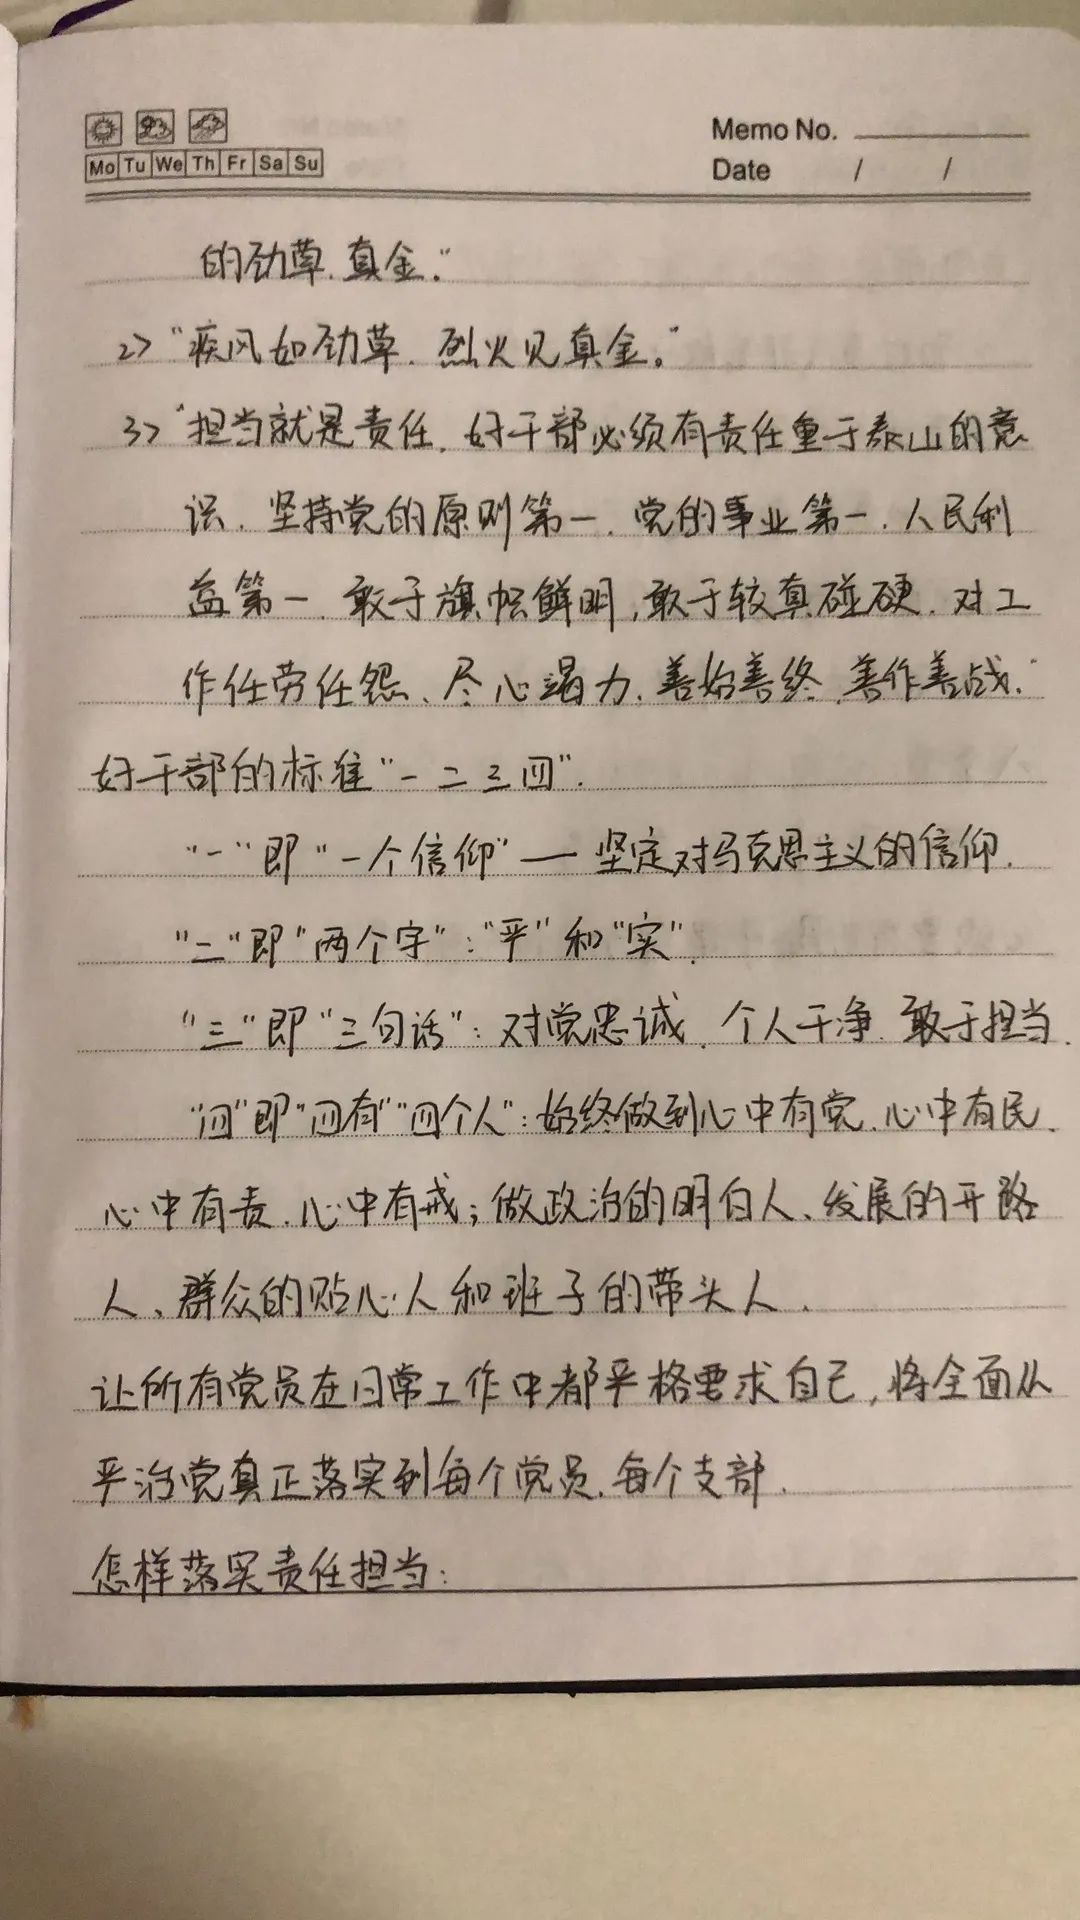 Memo No.
Mo Tu We Th Fr Sa Su
Date / /
的劲草、真金。"
2> "疾风如劲草、烈火见真金。"
3> "担当就是责任、好干部必须有责任重于泰山的意
识、坚持党的原则第一、党的事业第一、人民利
益第一、敢于旗帜鲜明,敢于较真碰硬、对工
作任劳任怨、尽心竭力、善始善终、善作善成."
好干部的标准"一二三四".
"一"即"一个信仰"—坚定对马克思主义的信仰.
"二"即"两个字":"严"和"实".
"三"即"三句话":对党忠诚、个人干净、敢于担当.
"四"即"四有""四个人":始终做到心中有党、心中有民、
心中有责、心中有戒;做政治的明白人、发展的开路
人、群众的贴心人和班子的带头人.
让所有党员在日常工作中都严格要求自己,将全面从
严治党真正落实到每个党员、每个支部.
怎样落实责任担当: